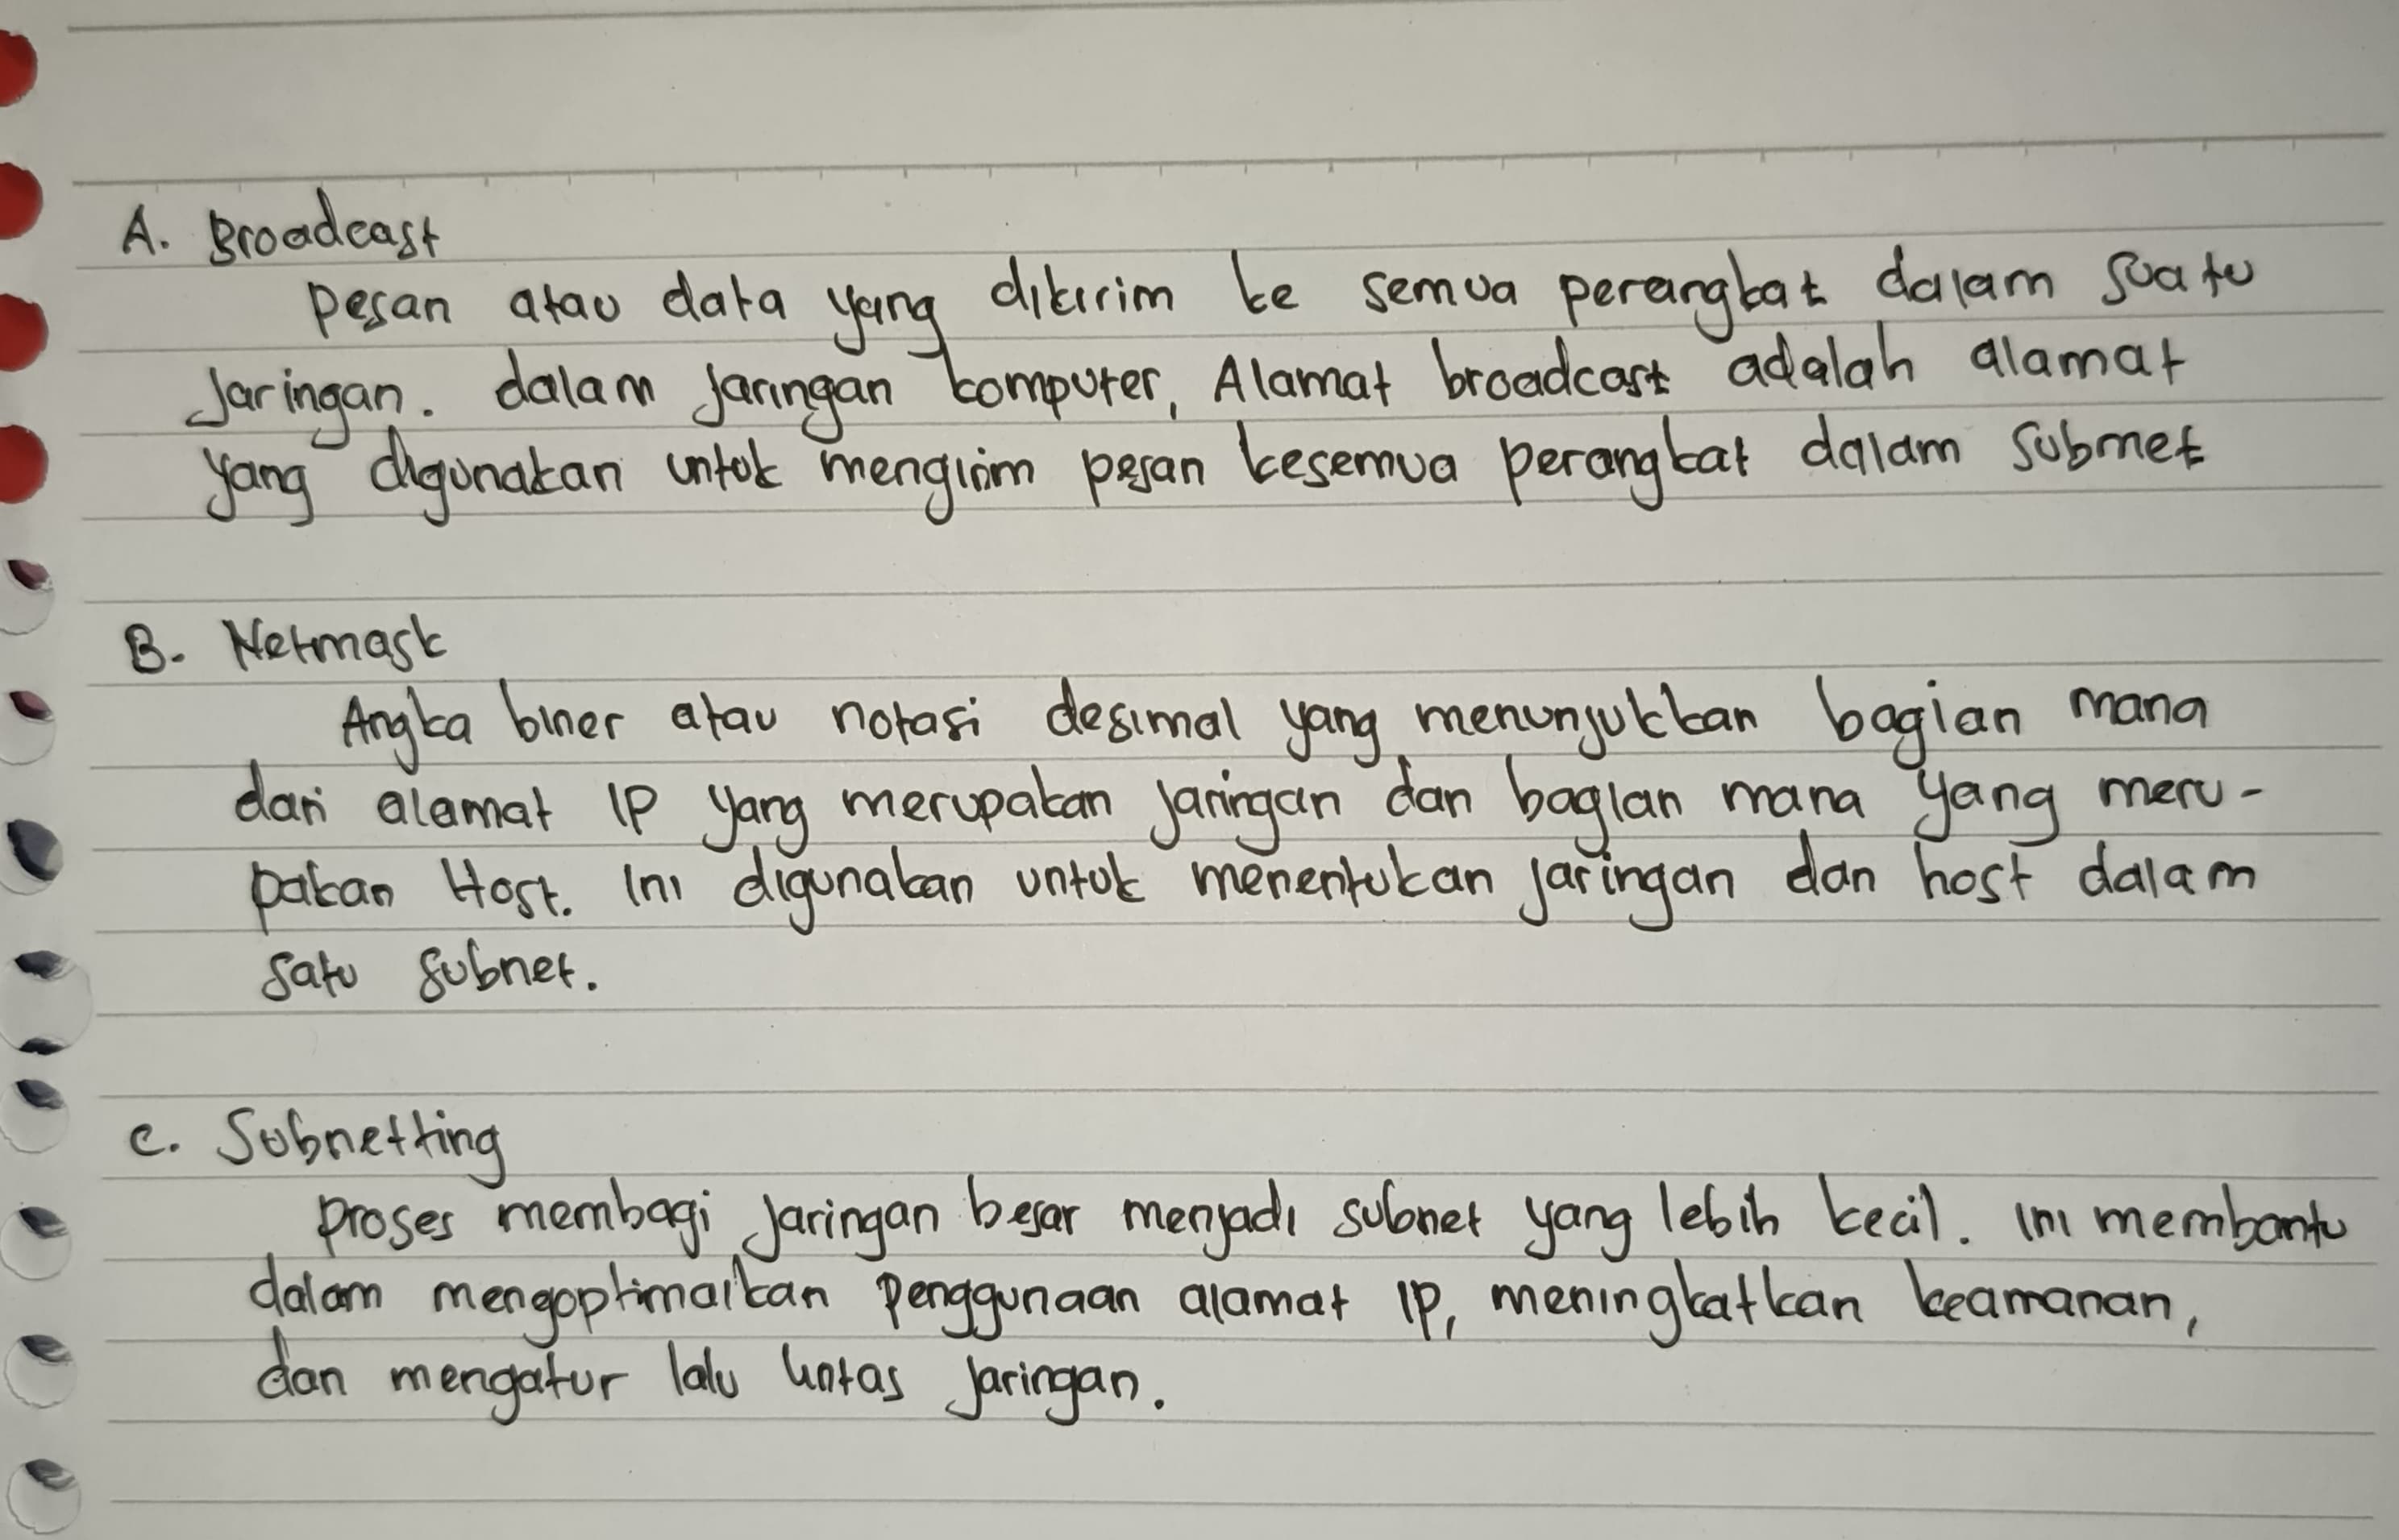 A. Broadcast
Pesan atau data yang dikirim ke semua perangkat dalam suatu
Jaringan. dalam jaringan komputer, Alamat broadcast adalah alamat
yang digunakan untuk mengirim pesan kesemua perangkat dalam submet
B. Netmask
Angka biner atau notasi desimal yang menunjukkan bagian mana
dari alamat IP yang merupakan jaringan dan bagian mana yang meru-
pakan Host. Ini digunakan untuk menentukan jaringan dan host dalam
satu subnet.
C. Subnetting
Proses membagi jaringan besar menjadi subnet yang lebih kecil. Ini membantu
dalam mengoptimalkan penggunaan alamat IP, meningkatkan keamanan,
dan mengatur lalu lintas jaringan.